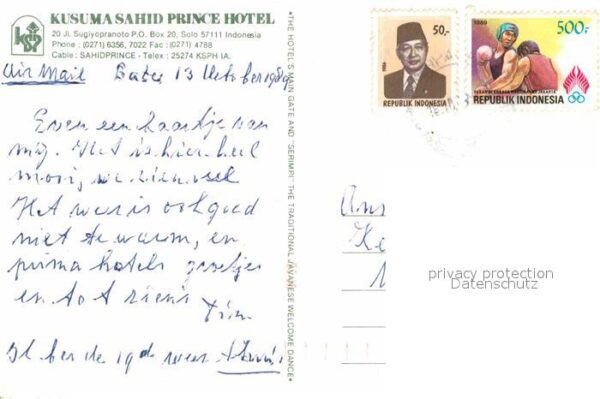 KUSUMA SAHID PRINCE HOTEL
20 Jl. Sugiyopranoto P.O. Box 20, Solo 57111 Indonesia
Phone : (0271) 6356, 7022 Fax : (0271) 4788
Cable : SAHIDPRINCE - Telex : 25274 KSPH IA.
Air Mail 13 October 1989
Even een kaartje van
mij. Het is hier heel
mooi, we zien veel
Het weer is ook goed
niet te warm, en
prima hotels groetjes
en tot ziens
Tim
Ik ben de 19de weer
•THE HOTEL'S MAIN GATE AND "SERIMPI" THE TRADITIONAL JAVANESE WELCOME DANCE•
50,-
1989
500,-
REPUBLIK INDONESIA
REPUBLIK INDONESIA
privacy protection
Datenschutz